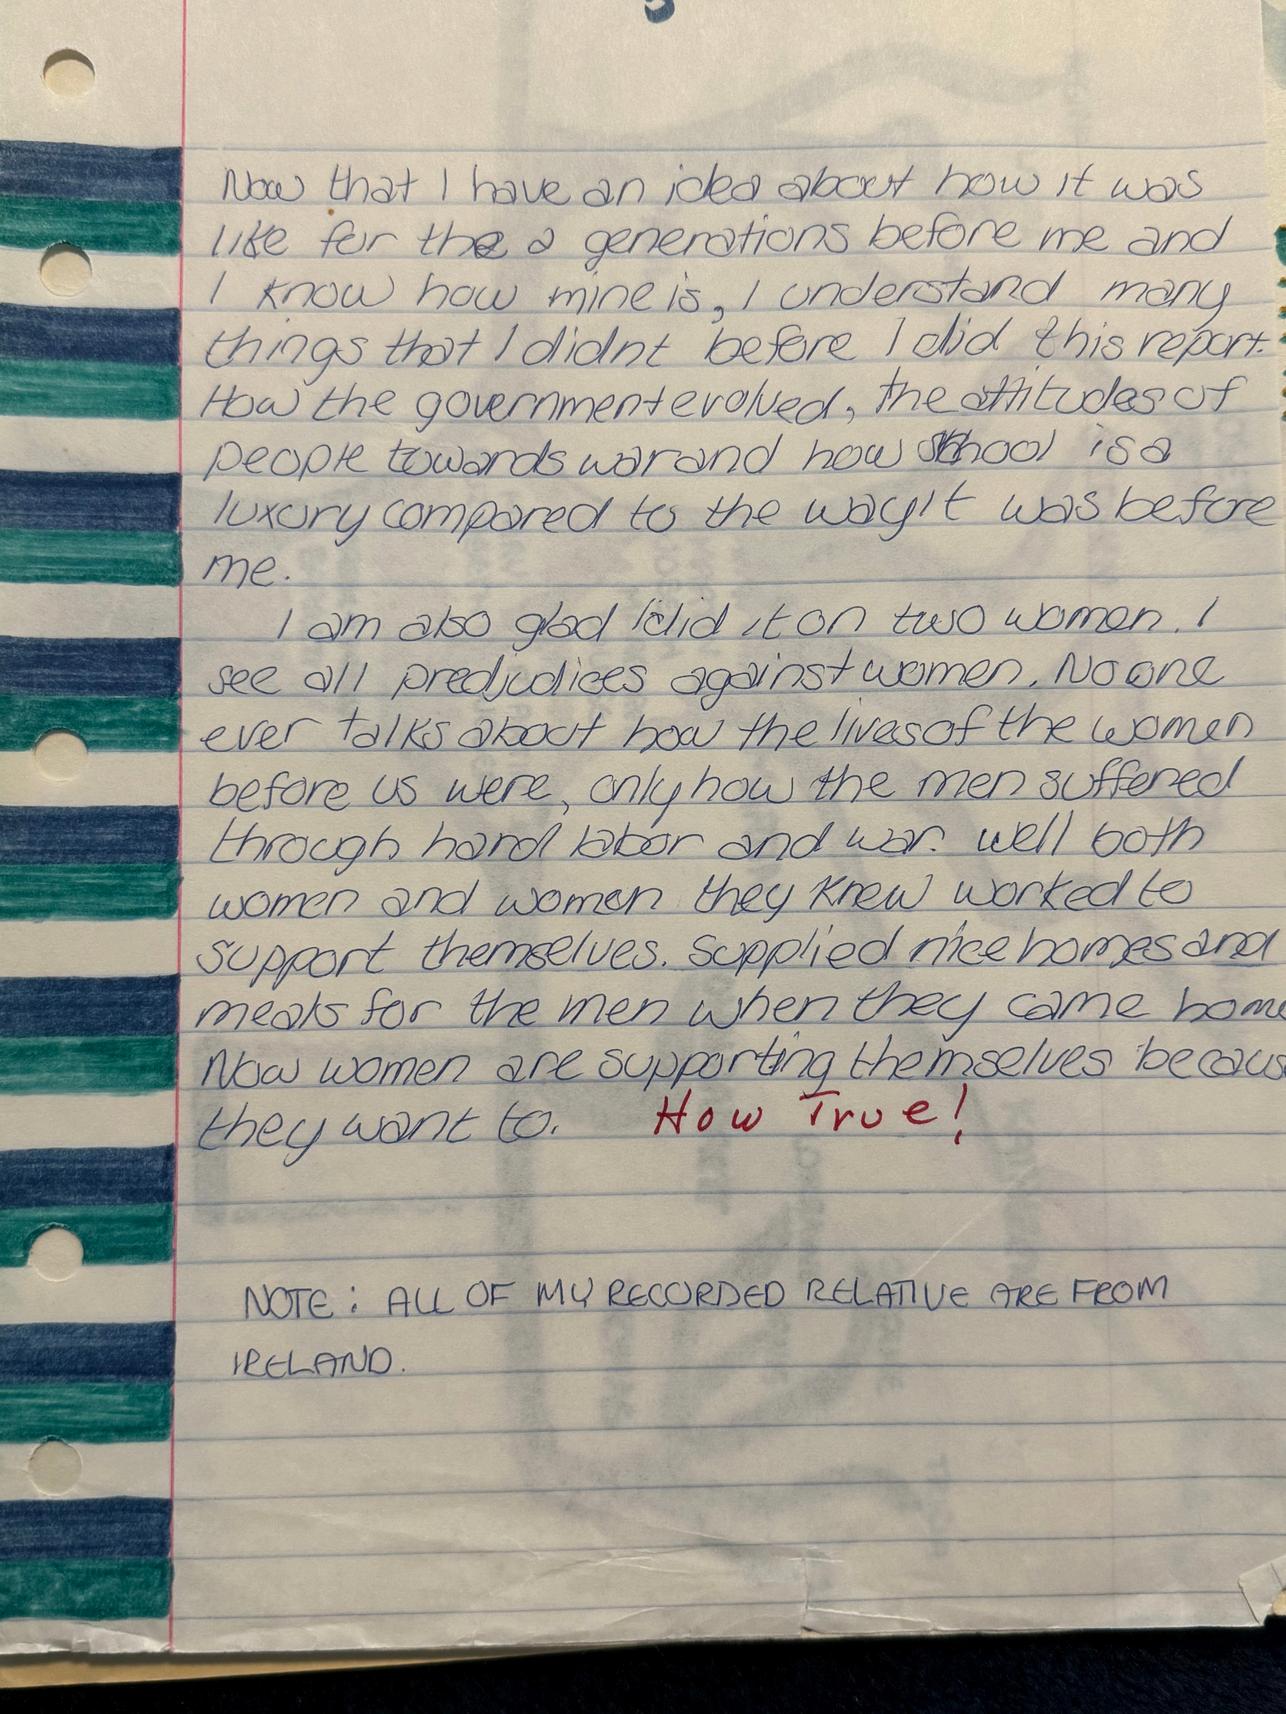 Now that I have an idea about how it was
like for the 2 generations before me and
I know how mine is, I understand many
things that I didnt before I did this report.
How the government evolved, the attitudes of
people towards war and how school is a
luxury compared to the way it was before
me.
I am also glad I did it on two women. I
see all predjudices against women. No one
ever talks about how the lives of the women
before us were, only how the men suffered
through hard labor and war. well both
women and women they knew worked to
support themselves. Supplied nice homes and
meals for the men when they came home
Now women are supporting themselves becaus
they want to. How True!
NOTE: ALL OF MY RECORDED RELATIVE ARE FROM
IRELAND.